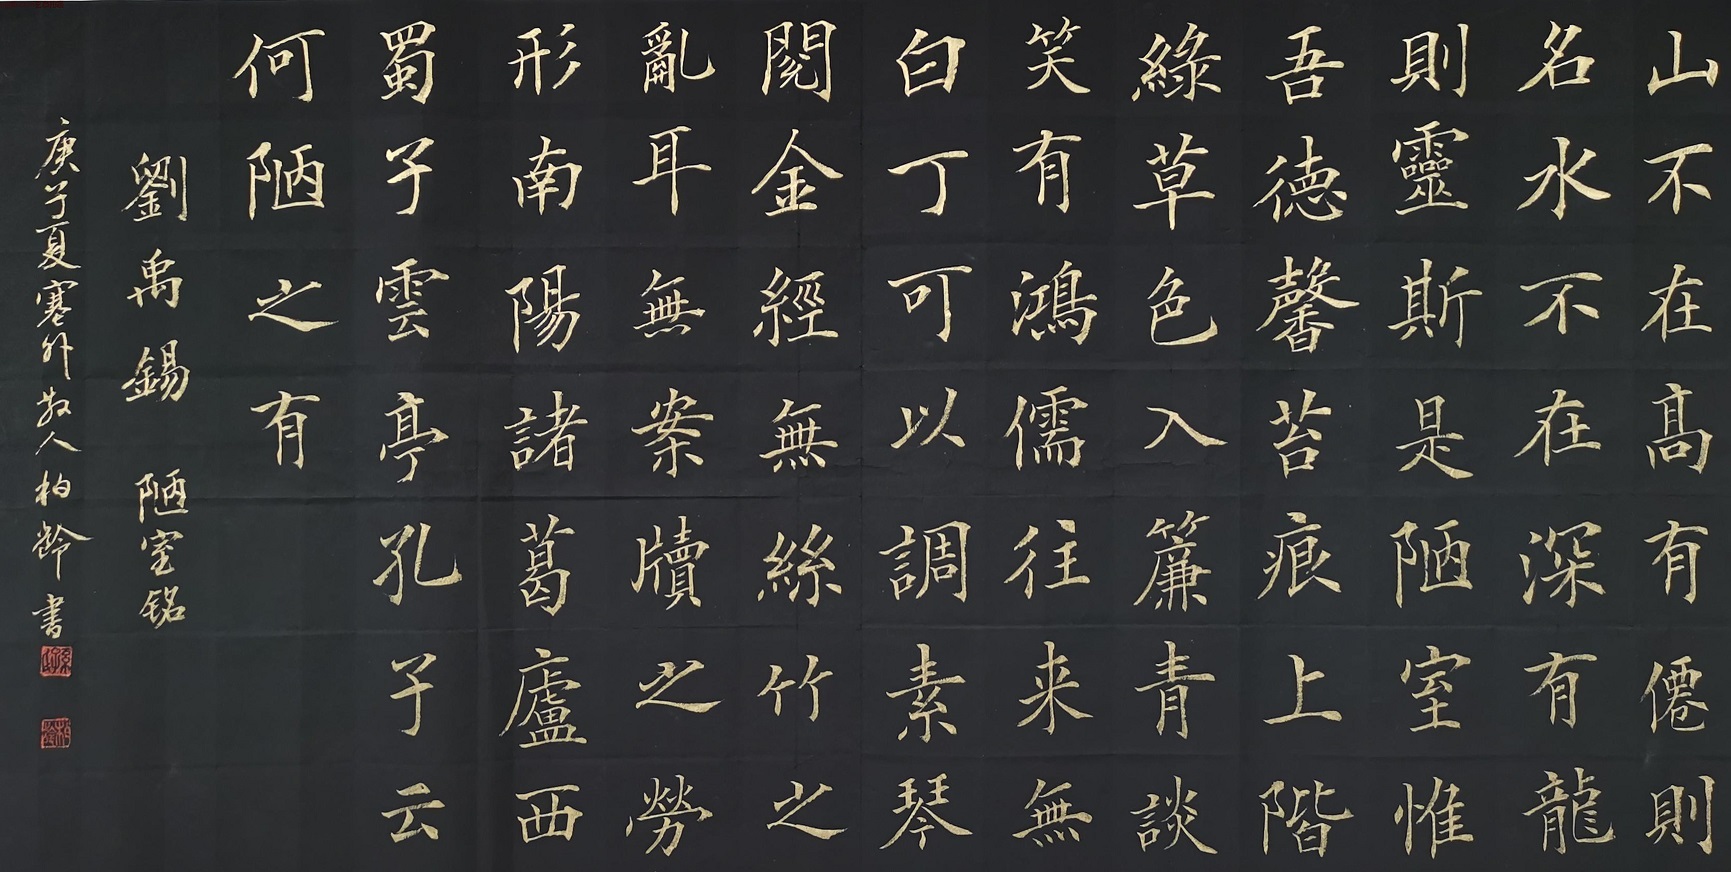 山不在高有僊則
名水不在深有龍
則靈斯是陋室惟
吾德馨苔痕上階
綠草色入簾青談
笑有鴻儒往来無
白丁可以調素琴
閱金經無絲竹之
亂耳無案牘之勞
形南陽諸葛廬西
蜀子雲亭孔子云
何陋之有
劉禹錫 陋室铭
庚子夏塞外散人柏齡書